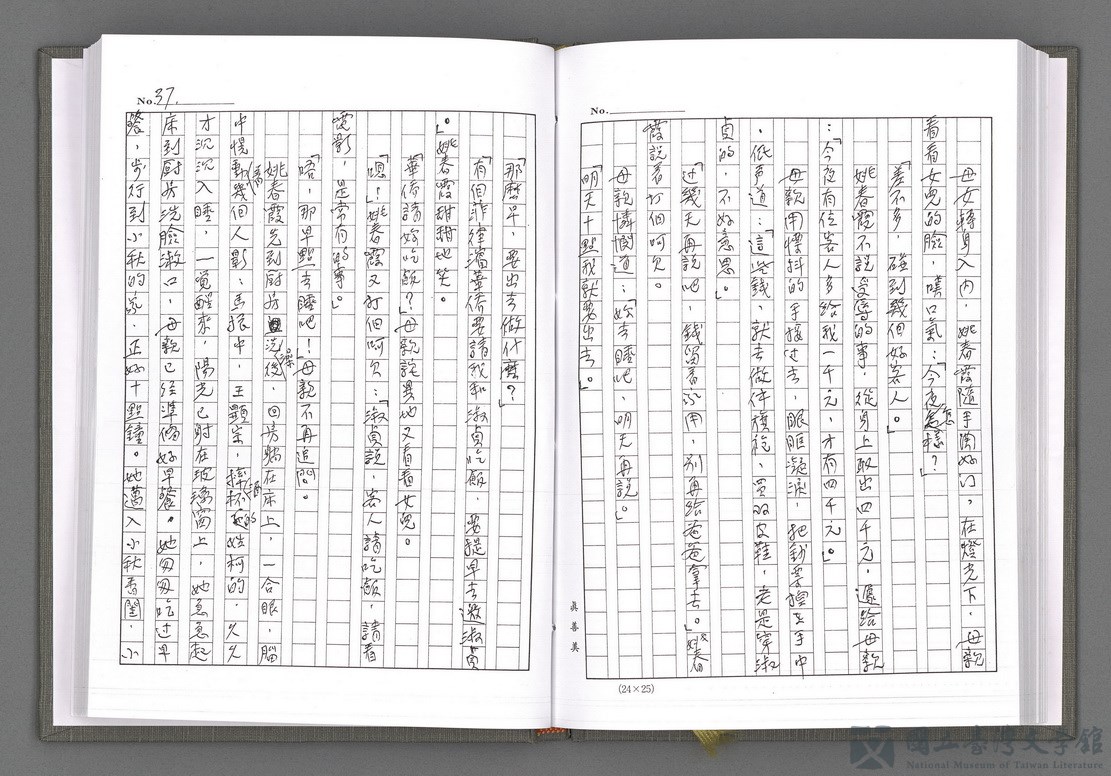 No.
母女轉身入內，姚春霞隨手關好门，在燈光下，母親
看看女兒的臉，嘆口氣：「今夜怎樣？」
「差不多，碰到幾個好客人。」
姚春霞不說受辱的事，從身上取出四千元，遞給母親
：「今夜有位客人多給我一千元，才有四千元。」
母親用慄抖的手接过去，眼眶凝淚，把鈔票揑在手中
，低声道：「這些錢，就去做件旗袍、買双皮鞋，老是穿淑
貞的，不好意思。」
「过幾天再說吧，錢留着家用，別再给爸爸拿去。」姚春
霞說着打個呵欠。
母親憐憫道：「妳去睡吧，明天再說。」
「明天十點我就要出去。」
真善美
(24×25)
No.37.
「那麼早，要出去做什麼？」
「有個菲律濱華僑要請我和淑貞吃飯，要提早去激淑貞
。」姚春霞甜甜地笑。
「華僑請妳吃飯？」母親詫異地又有看女兒。
「嗯！」姚春霞又打個呵欠：「淑貞說，客人請吃飯，請看
電影，是常有的事。」
「唔，那早點去睡吧！」母親不再追問。
姚春霞先到廚房洗澡後，回房躺在床上，一合眼，腦
中慢動幾個人影：馬振中、王顯宗，摔杯的姓柯的，久久
才沉沉入睡，一覺醒來，陽光已射在玻璃窗上，她急急起
床到廚房洗臉漱口，母親已经準備好早餐。她匆匆吃过早
餐，步行到小秋的家，正好十點鐘。她邁入小秋香閨，小
國立臺灣文學館
National Museum of Taiwan Literature